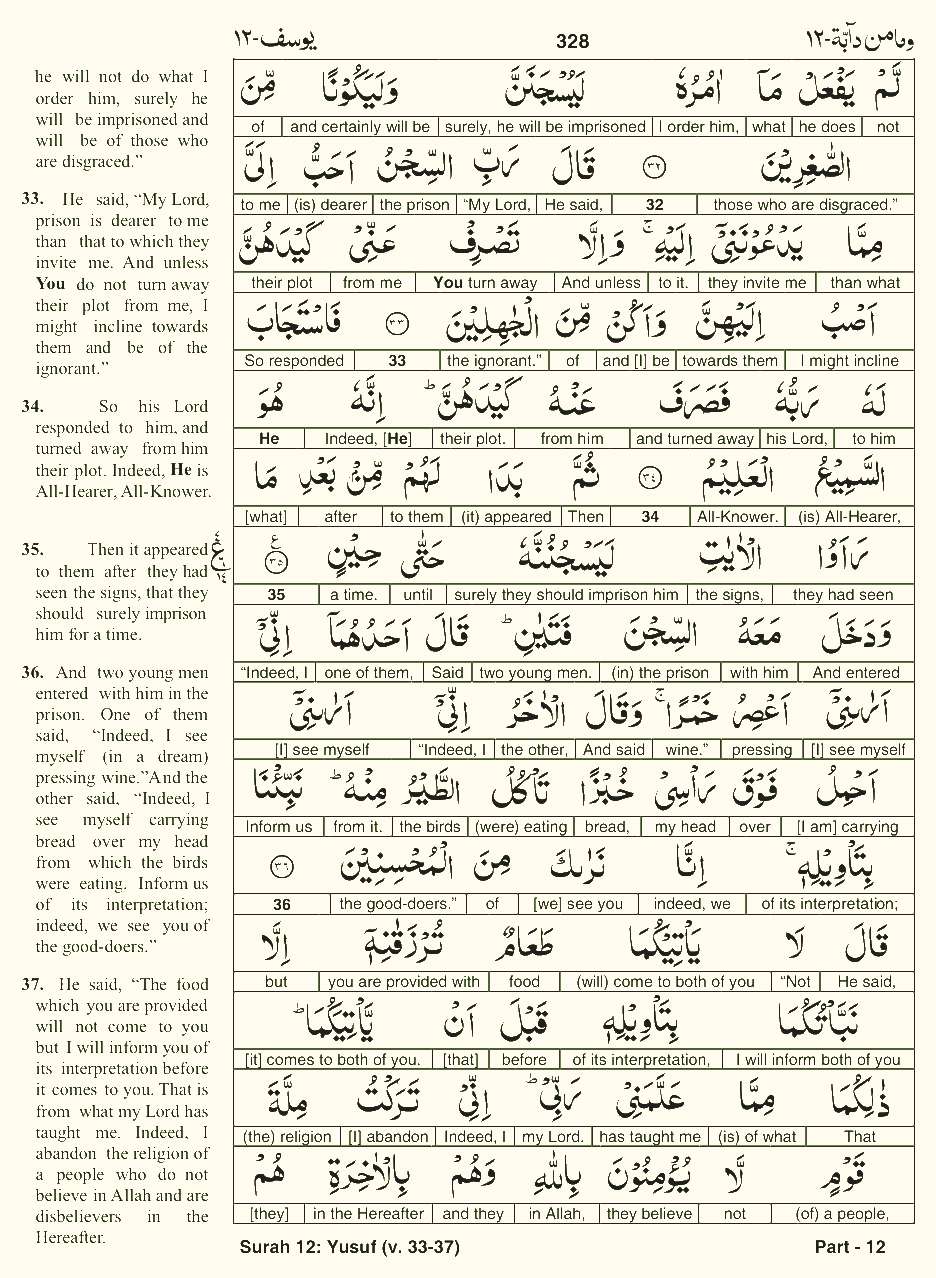 يوسف-١٢ 328 وما من دآبة-١٢
he will not do what I
order him, surely he
will be imprisoned and
will be of those who
are disgraced.”
33. He said, “My Lord,
prison is dearer to me
than that to which they
invite me. And unless
You do not turn away
their plot from me, I
might incline towards
them and be of the
ignorant.”
34. So his Lord
responded to him, and
turned away from him
their plot. Indeed, He is
All-Hearer, All-Knower.
35. Then it appeared
to them after they had
seen the signs, that they
should surely imprison
him for a time.
36. And two young men
entered with him in the
prison. One of them
said, “Indeed, I see
myself (in a dream)
pressing wine.”And the
other said, “Indeed, I
see myself carrying
bread over my head
from which the birds
were eating. Inform us
of its interpretation;
indeed, we see you of
the good-doers.”
37. He said, “The food
which you are provided
will not come to you
but I will inform you of
its interpretation before
it comes to you. That is
from what my Lord has
taught me. Indeed, I
abandon the religion of
a people who do not
believe in Allah and are
disbelievers in the
Hereafter.
لَّمْ يَفْعَلْ مَآ اٰمُرُهٗ لَيُسْجَنَنَّ وَلَيَكُوْنًا مِّنَ
of | and certainly will be | surely, he will be imprisoned | I order him, | what | he does | not
الصّٰغِرِيْنَ ٣٢ قَالَ رَبِّ السِّجْنُ اَحَبُّ اِلَيَّ
to me | (is) dearer | the prison | “My Lord, | He said, | 32 | those who are disgraced.”
مِمَّا يَدْعُوْنَنِيْٓ اِلَيْهِ ۚ وَاِلَّا تَصْرِفْ عَنِّيْ كَيْدَهُنَّ
their plot | from me | You turn away | And unless | to it. | they invite me | than what
اَصْبُ اِلَيْهِنَّ وَاَكُنْ مِّنَ الْجٰهِلِيْنَ ٣٣ فَاسْتَجَابَ
So responded | 33 | the ignorant.” | of | and [I] be | towards them | I might incline
لَهٗ رَبُّهٗ فَصَرَفَ عَنْهُ كَيْدَهُنَّ ؕ اِنَّهٗ هُوَ
He | Indeed, [He] | their plot. | from him | and turned away | his Lord, | to him
السَّمِيْعُ الْعَلِيْمُ ٣٤ ثُمَّ بَدَا لَهُمْ مِّنْۢ بَعْدِ مَا
[what] | after | to them | (it) appeared | Then | 34 | All-Knower. | (is) All-Hearer,
رَاَوُا الْاٰيٰتِ لَيَسْجُنُنَّهٗ حَتّٰى حِيْنٍ ٣٥ ع
35 | a time. | until | surely they should imprison him | the signs, | they had seen
وَدَخَلَ مَعَهُ السِّجْنَ فَتَيٰنِ ؕ قَالَ اَحَدُهُمَآ اِنِّيْٓ
“Indeed, I | one of them, | Said | two young men. | (in) the prison | with him | And entered
اَرٰىنِيْٓ اَعْصِرُ خَمْرًا ۚ وَقَالَ الْاٰخَرُ اِنِّيْٓ اَرٰىنِيْٓ
[I] see myself | “Indeed, I | the other, | And said | wine.” | pressing | [I] see myself
اَحْمِلُ فَوْقَ رَاْسِيْ خُبْزًا تَاْكُلُ الطَّيْرُ مِنْهُ ؕ نَبِّئْنَا
Inform us | from it. | the birds | (were) eating | bread, | my head | over | [I am] carrying
بِتَاْوِيْلِهٖ ۚ اِنَّا نَرٰىكَ مِنَ الْمُحْسِنِيْنَ ٣٦
36 | the good-doers.” | of | [we] see you | indeed, we | of its interpretation;
قَالَ لَا يَاْتِيْكُمَا طَعَامٌ تُرْزَقٰنِهٖٓ اِلَّا
but | you are provided with | food | (will) come to both of you | “Not | He said,
نَبَّاْتُكُمَا بِتَاْوِيْلِهٖ قَبْلَ اَنْ يَّاْتِيَكُمَا ؕ
[it] comes to both of you. | [that] | before | of its interpretation, | I will inform both of you
ذٰلِكُمَا مِمَّا عَلَّمَنِيْ رَبِّيْ ؕ اِنِّيْ تَرَكْتُ مِلَّةَ
(the) religion | [I] abandon | Indeed, I | my Lord. | has taught me | (is) of what | That
قَوْمٍ لَّا يُؤْمِنُوْنَ بِاللّٰهِ وَهُمْ بِالْاٰخِرَةِ هُمْ
[they] | in the Hereafter | and they | in Allah, | they believe | not | (of) a people,
Surah 12: Yusuf (v. 33-37) Part - 12